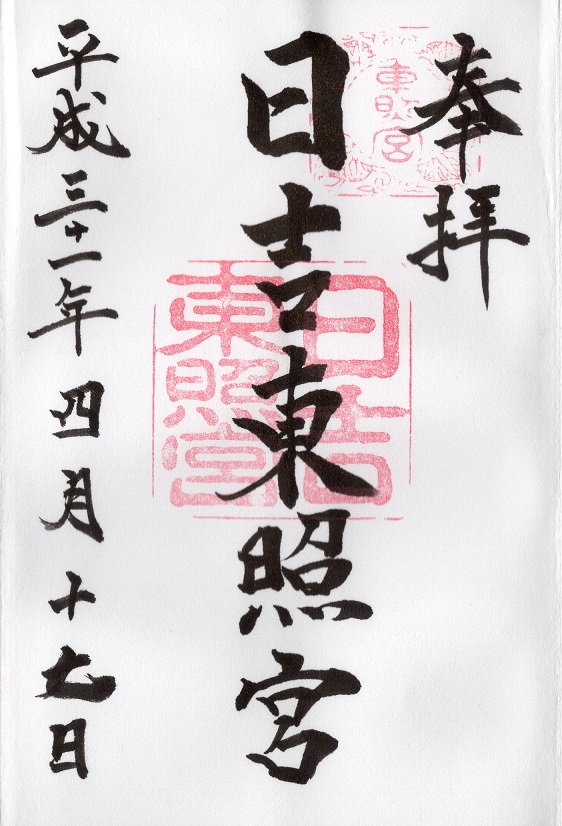 奉拝
東照宮
日吉東照宮
日吉
東照宮
平成三十一年四月十七日